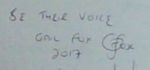 BE THEIR VOICE
GAIL FOX GFox
2017